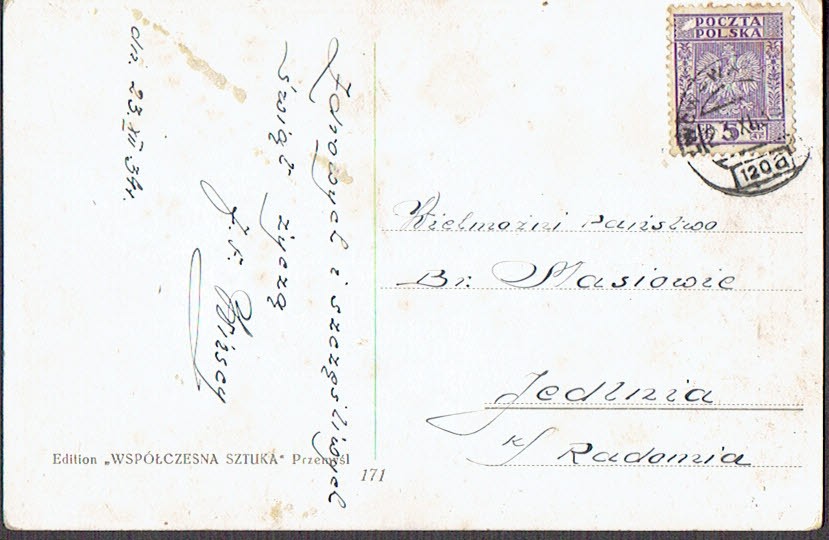 Zdrowych i szczęśliwych
Świąt życzą
dn. 23.XII 34r.
POCZTA
POLSKA
5
120a
Wielmożni Państwo
Br. Stasiowie
Jedlnia
k/ Radomia
Edition „WSPÓŁCZESNA SZTUKA" Przemyśl
171